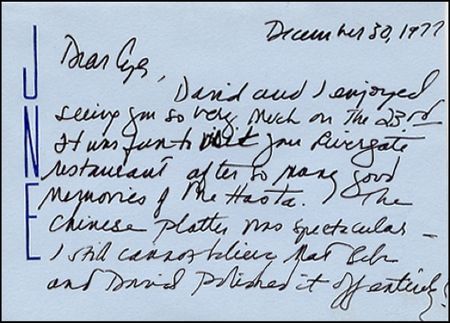 December 30, 1977
Dear
David and I enjoyed
seeing you so very much on the 23rd
It was fun to visit your Rivergate
restaurant after so many good
memories of the Hasta. The
Chinese platter was spectacular —
I still cannot believe that Bebe
and David polished it off entirely!
JNE